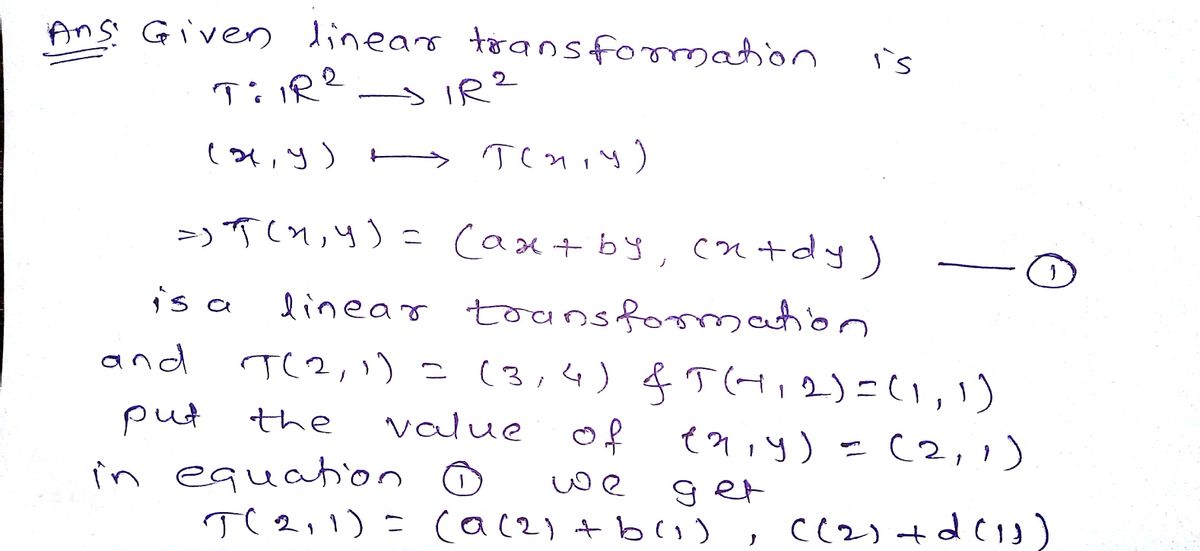 Ans: Given linear transformation is
T: IR² → IR²
(x, y) ↦ T(x, y)
⇒ T(x, y) = (ax + by, cx + dy) — ①
is a linear transformation
and T(2, 1) = (3, 4) & T(-1, 2) = (1, 1)
put the value of (x, y) = (2, 1)
in equation ① we get
T(2, 1) = (a(2) + b(1), c(2) + d(1))